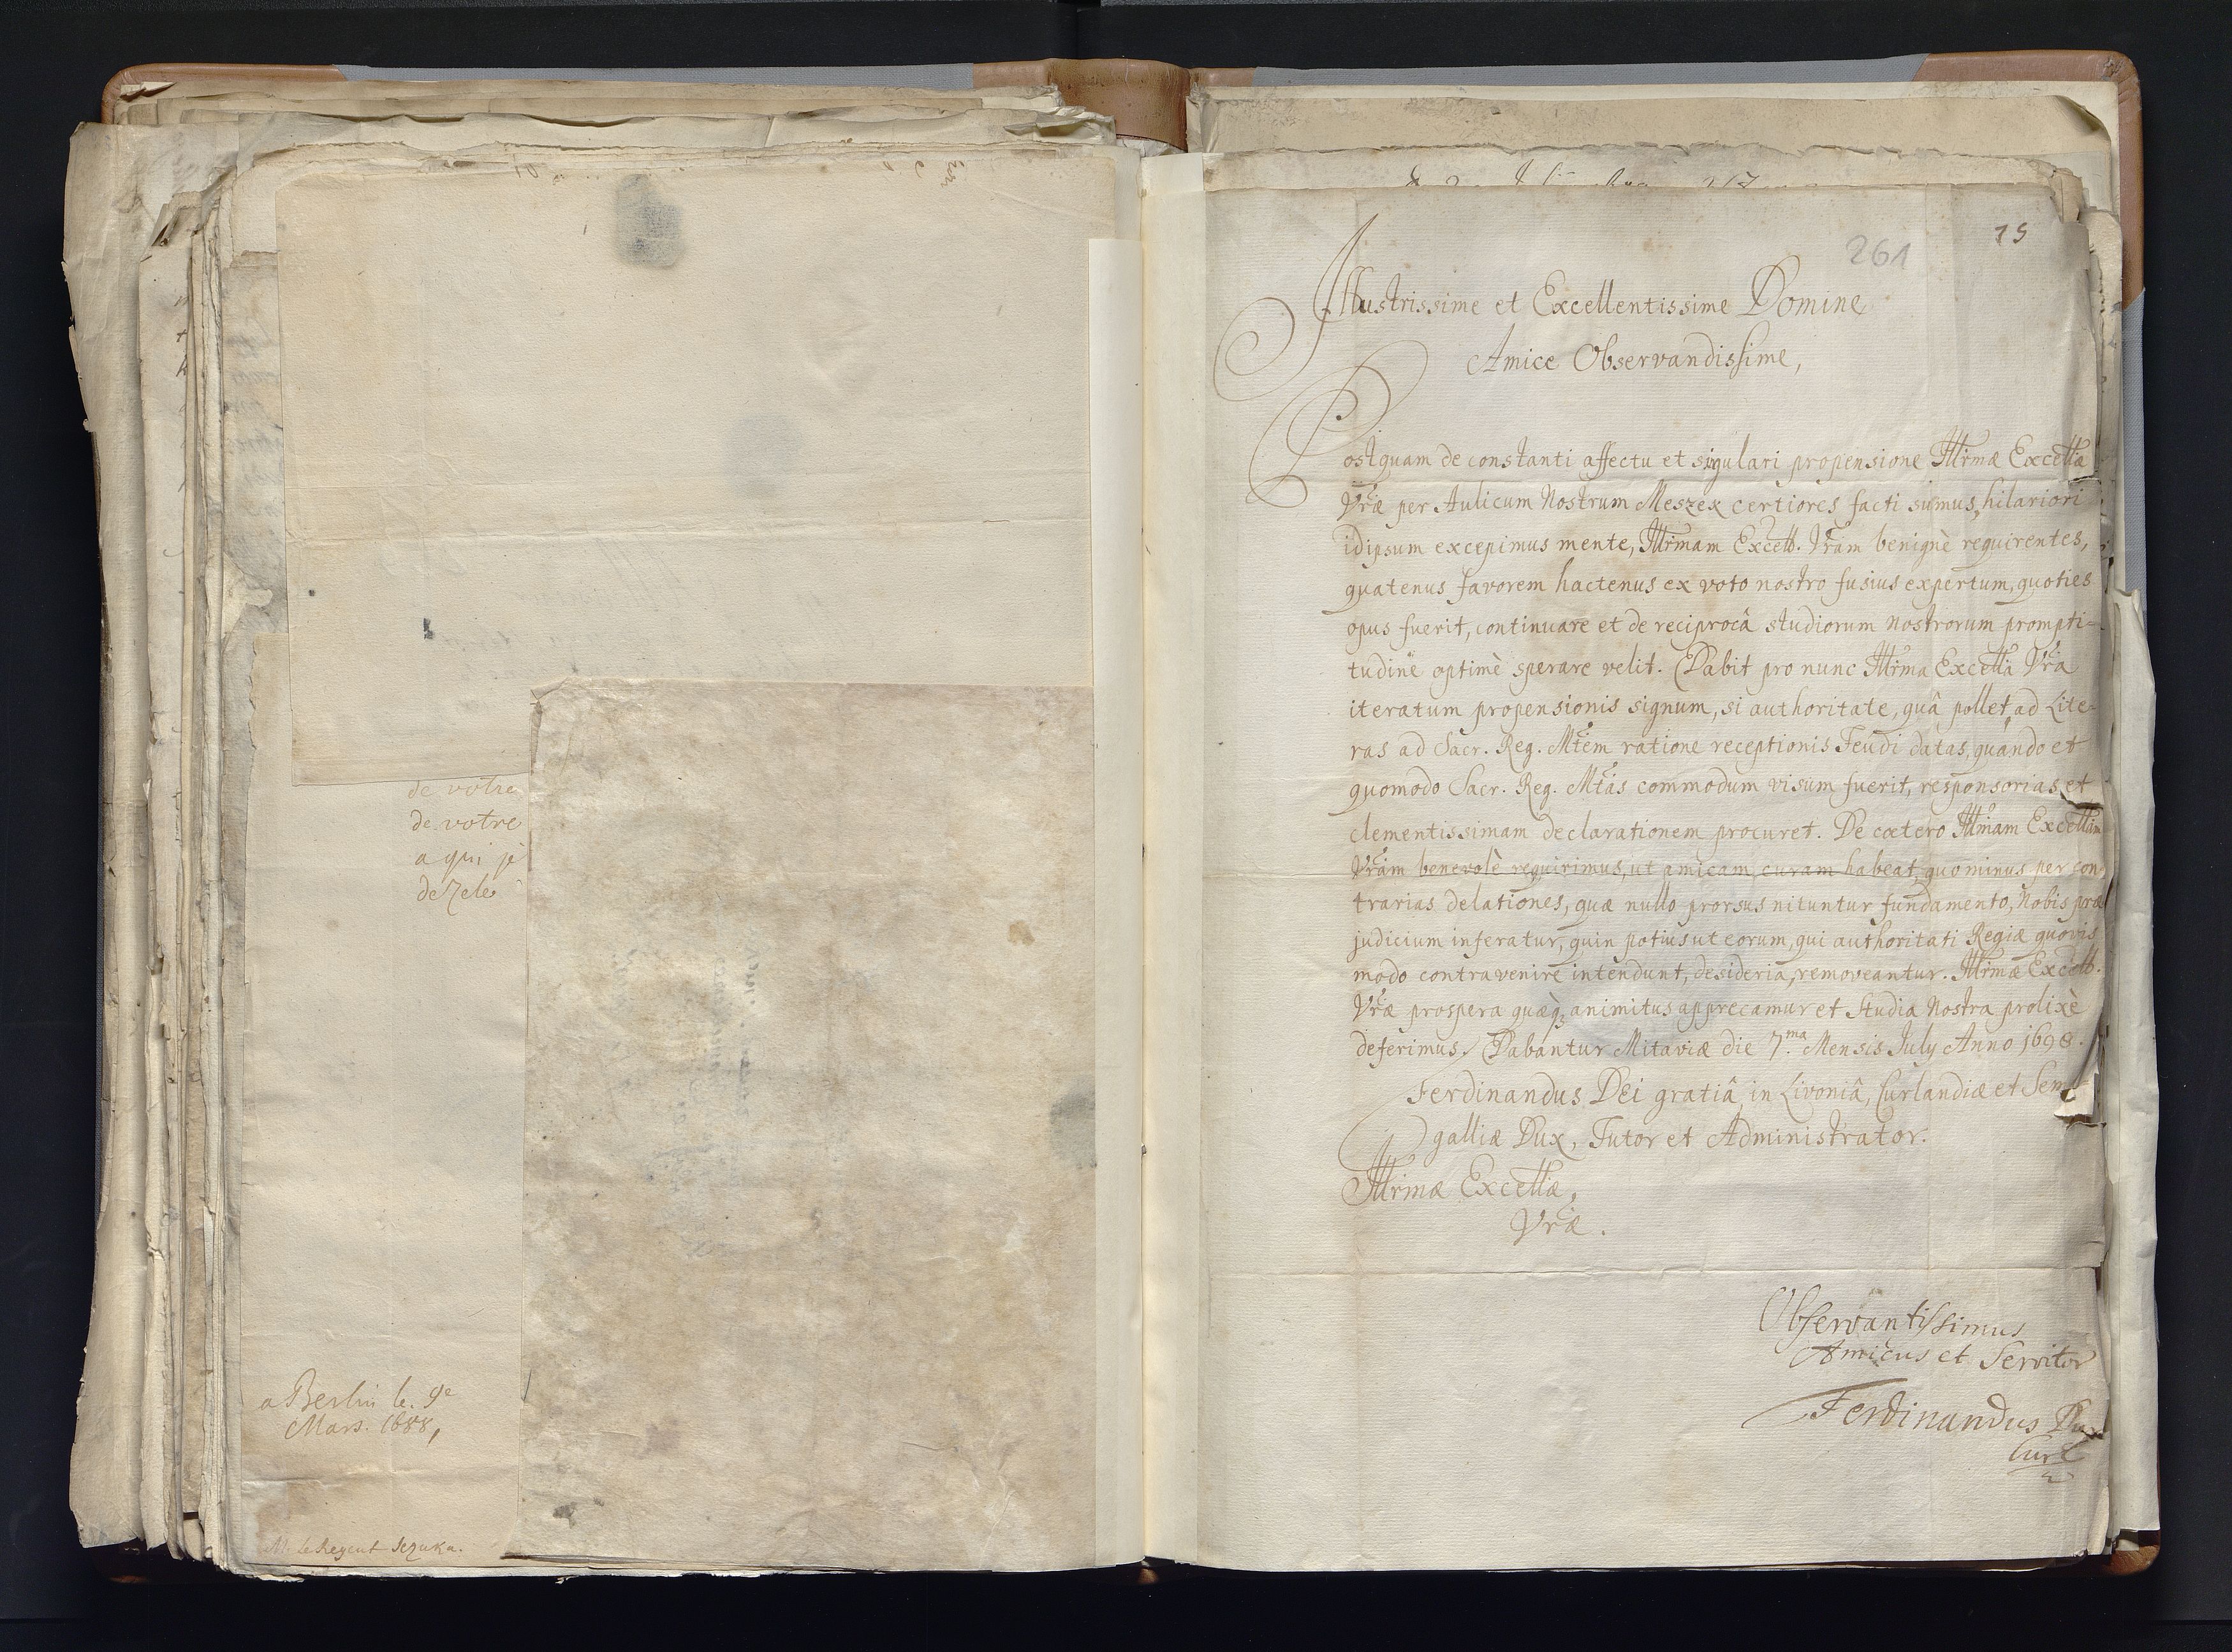 de votre
de votre
a qui je
de Zele
a Berlin le. 9e
Mars. 1688,
M. le Regent Sczuka.
261
75
Illustrissime et Excellentissime Domine
Amice Observandissime,
Postquam de constanti affectu et sigulari propensione Illrmæ Excellæ
Vræ per Aulicum Nostrum Meszek certiores facti sumus, hilariori
idipsum excepimus mente, Illrmam Excell. Vram benignè requirentes,
quatenus favorem hactenus ex voto nostro fusius expertum, quoties
opus fuerit, continuare et de reciprocâ studiorum nostrorum prompti=
tudine optimè sperare velit. Dabit pro nunc Illrma Excella Vra
iteratum propensionis signum, si authoritate, quâ pollet, ad Lite-
ras ad Sacr. Reg. Mtem ratione receptionis Feudi datas, quando et
quomodo Sacr. Reg. Mtas commodum visum fuerit, responsorias et
clementissimam declarationem procuret. De cœtero Illmam Excellam
Vram benevolè requirimus, ut amicam curam habeat, quominus per con-
trarias delationes, quæ nullo prorsus nituntur fundamento, Nobis præ
judicium inferatur, quin potius ut eorum, qui authoritati Regiæ quovis
modo contravenire intendunt, desideria, removeantur. Illrmæ Excell.
Vræ prospera quæq3 animitus apprecamur et Studia Nostra prolixè
deferimus. Dabantur Mitaviæ die 7.ma Mensis July Anno 1698.
Ferdinandus Dei gratiâ in Livoniâ, Curlandiæ et Semi
galliæ Dux, Tutor et Administrator.
Illrmæ Excellæ,
Vræ.
Observantissimus
Amicus et Servitor
Ferdinandus Dux
Curl